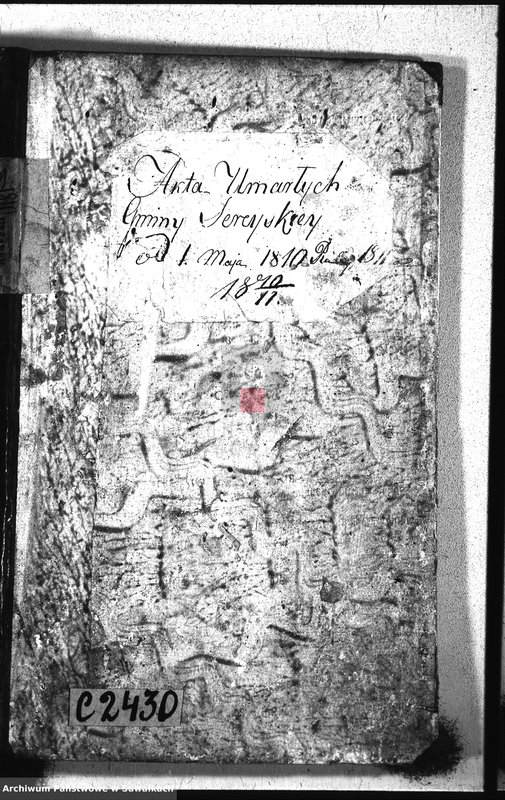 Akta Umarłych
Gminy Sereyskiey
od 1. Maja 1810
18 10/11.
C2430
Archiwum Państwowe w Suwałkach